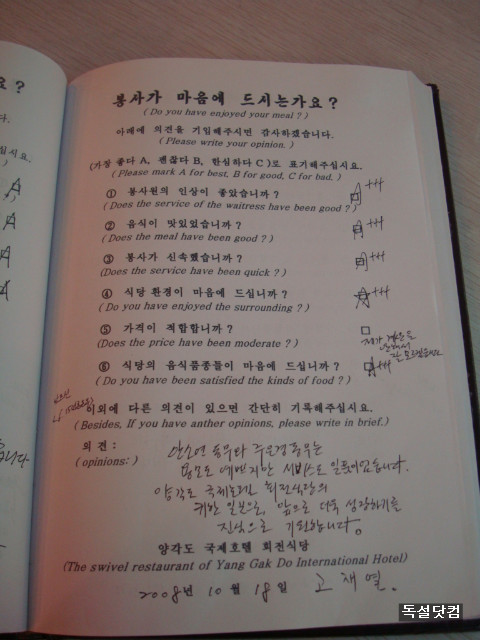 요?
봉사가 마음에 드시는가요?
( Do you have enjoyed your meal ? )
아래에 의견을 기입해주시면 감사하겠습니다.
( Please write your opinion. )
(가장 좋다 A, 괜찮다 B, 한심하다 C)로 표기해주십시요.
( Please mark A for best, B for good, C for bad. )
① 봉사원의 인상이 좋았습니까? A+++
( Does the service of the waitress have been good ? )
② 음식이 맛있었습니까? A+++
( Does the meal have been good ? )
③ 봉사가 신속했습니까? A+++
(Does the service have been quick ? )
④ 식당환경이 마음에 드십니까? A+++
( Do you have enjoyed the surrounding ? )
⑤ 가격이 적합합니까?
(Does the price have been moderate ? )
잘 모르겠네요
⑥ 식당의 음식품종들이 마음에 드십니까? A+++
( Do you have been satisfied the kinds of food ? )
이외에 다른 의견이 있으면 간단히 기록해주십시요.
(Besides, If you have anther opinions, please write in brief.)
의견 : 안소연 동무와 주은경 동무는
( opinions: ) 용모도 예쁘지만 서비스도 일품이었습니다.
양각도 국제호텔 회전식당의
귀한 일꾼으로, 앞으로 더욱 성장하기를
진심으로 기원합니다.
양각도 국제호텔 회전식당
(The swivel restaurant of Yang Gak Do International Hotel)
2008년 10월 18일 고재열.
독설닷컴